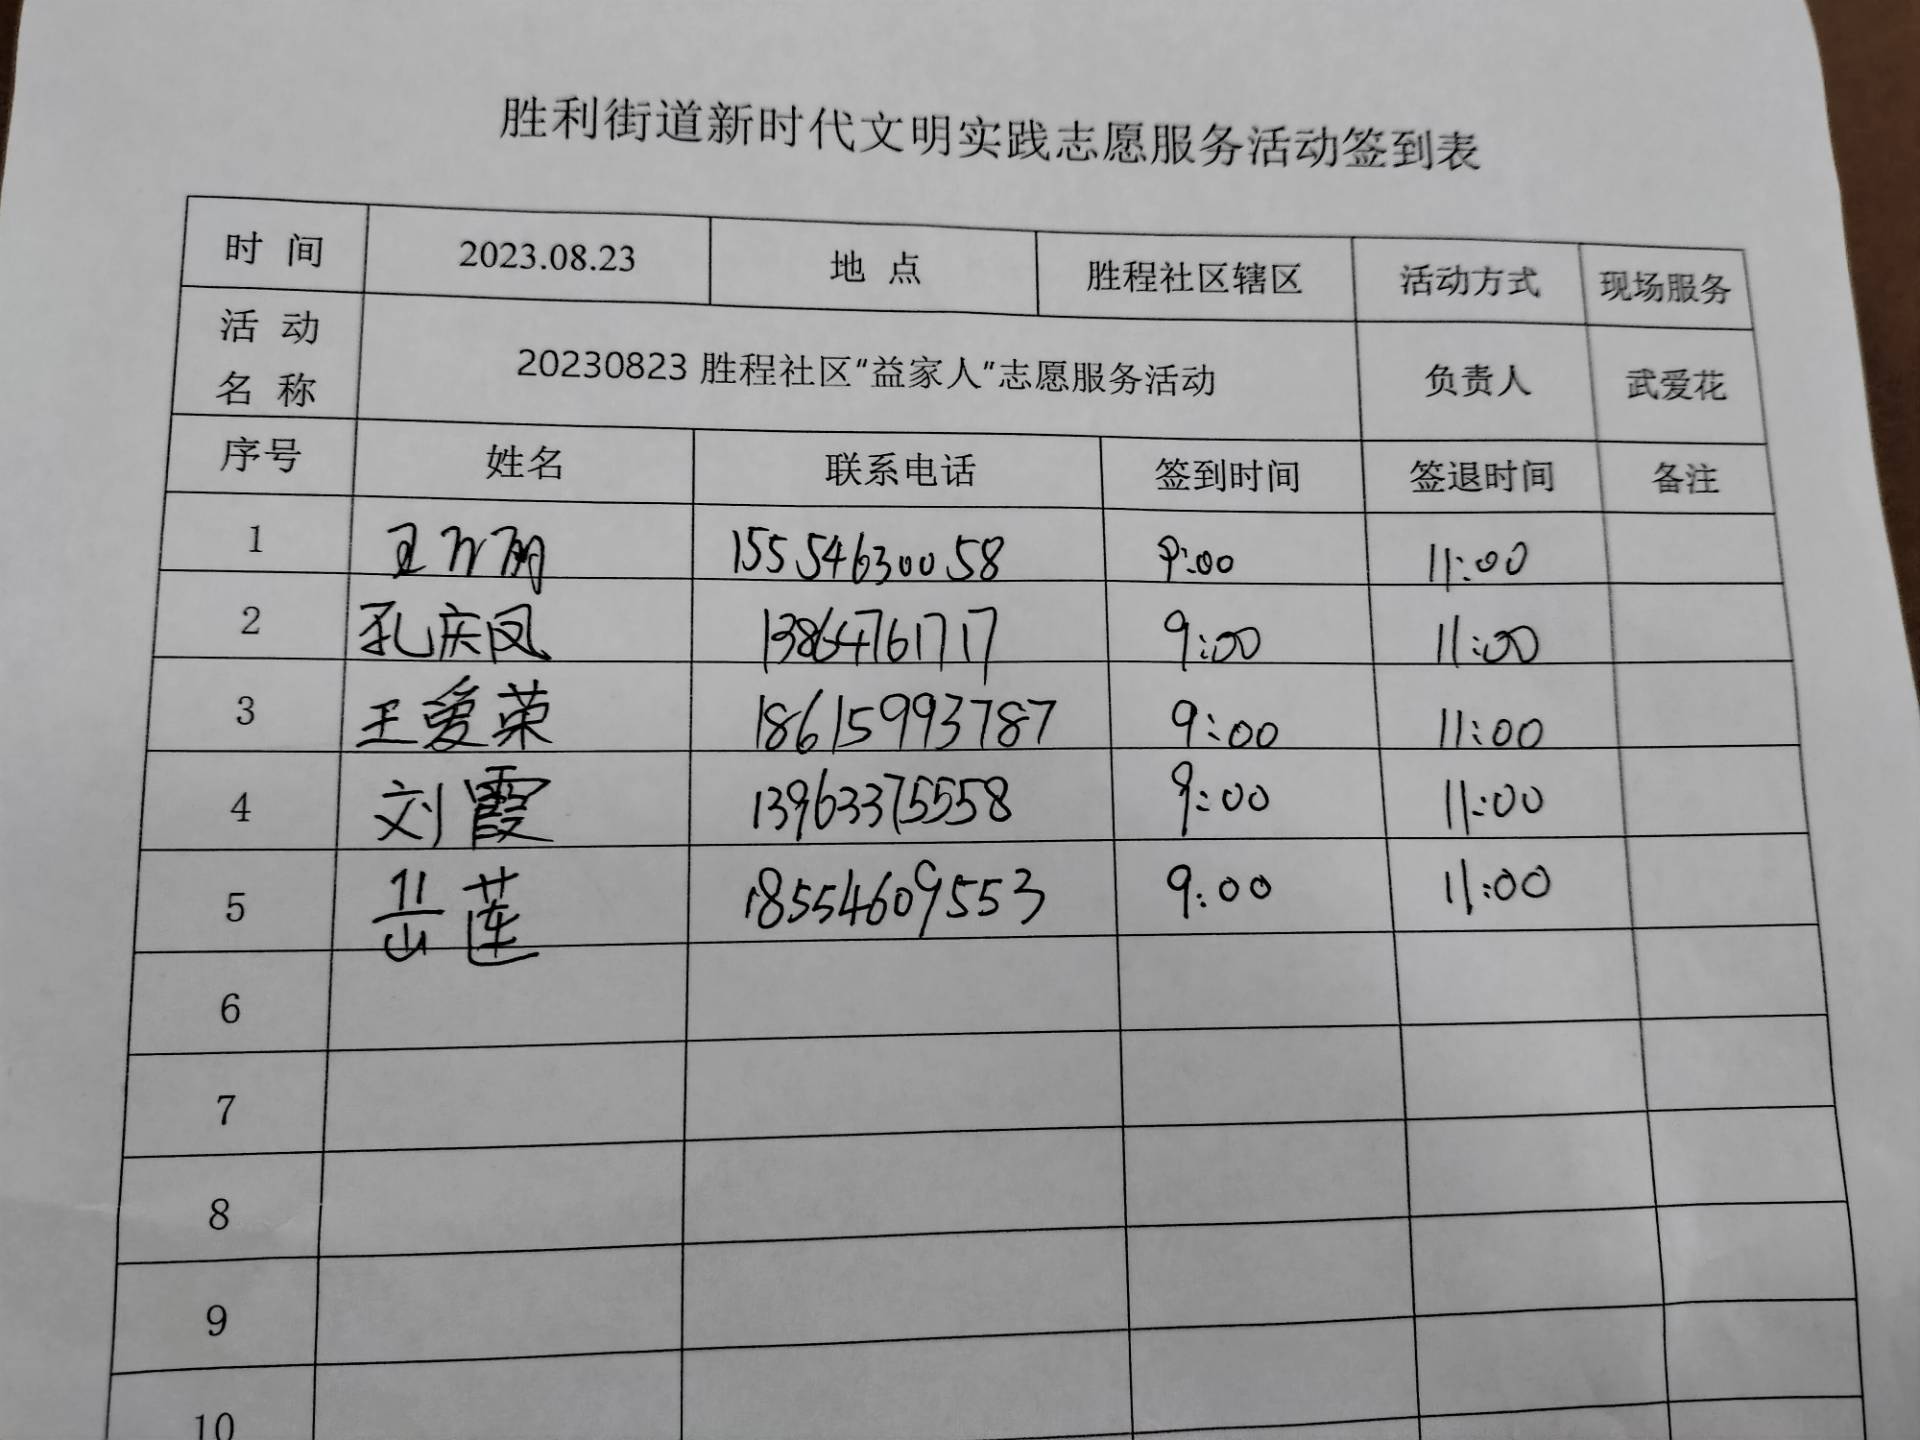 胜利街道新时代文明实践志愿服务活动签到表
时 间 2023.08.23 地 点 胜程社区辖区 活动方式 现场服务
活 动 名 称 20230823 胜程社区“益家人”志愿服务活动 负责人 武爱花
序号 姓名 联系电话 签到时间 签退时间 备注
1 王 15554630058 9:00 11:00
2 孔庆凤 13864761717 9:00 11:00
3 王爱荣 18615993787 9:00 11:00
4 刘霞 13963375558 9:00 11:00
5 莲 18554609553 9:00 11:00
6
7
8
9
10